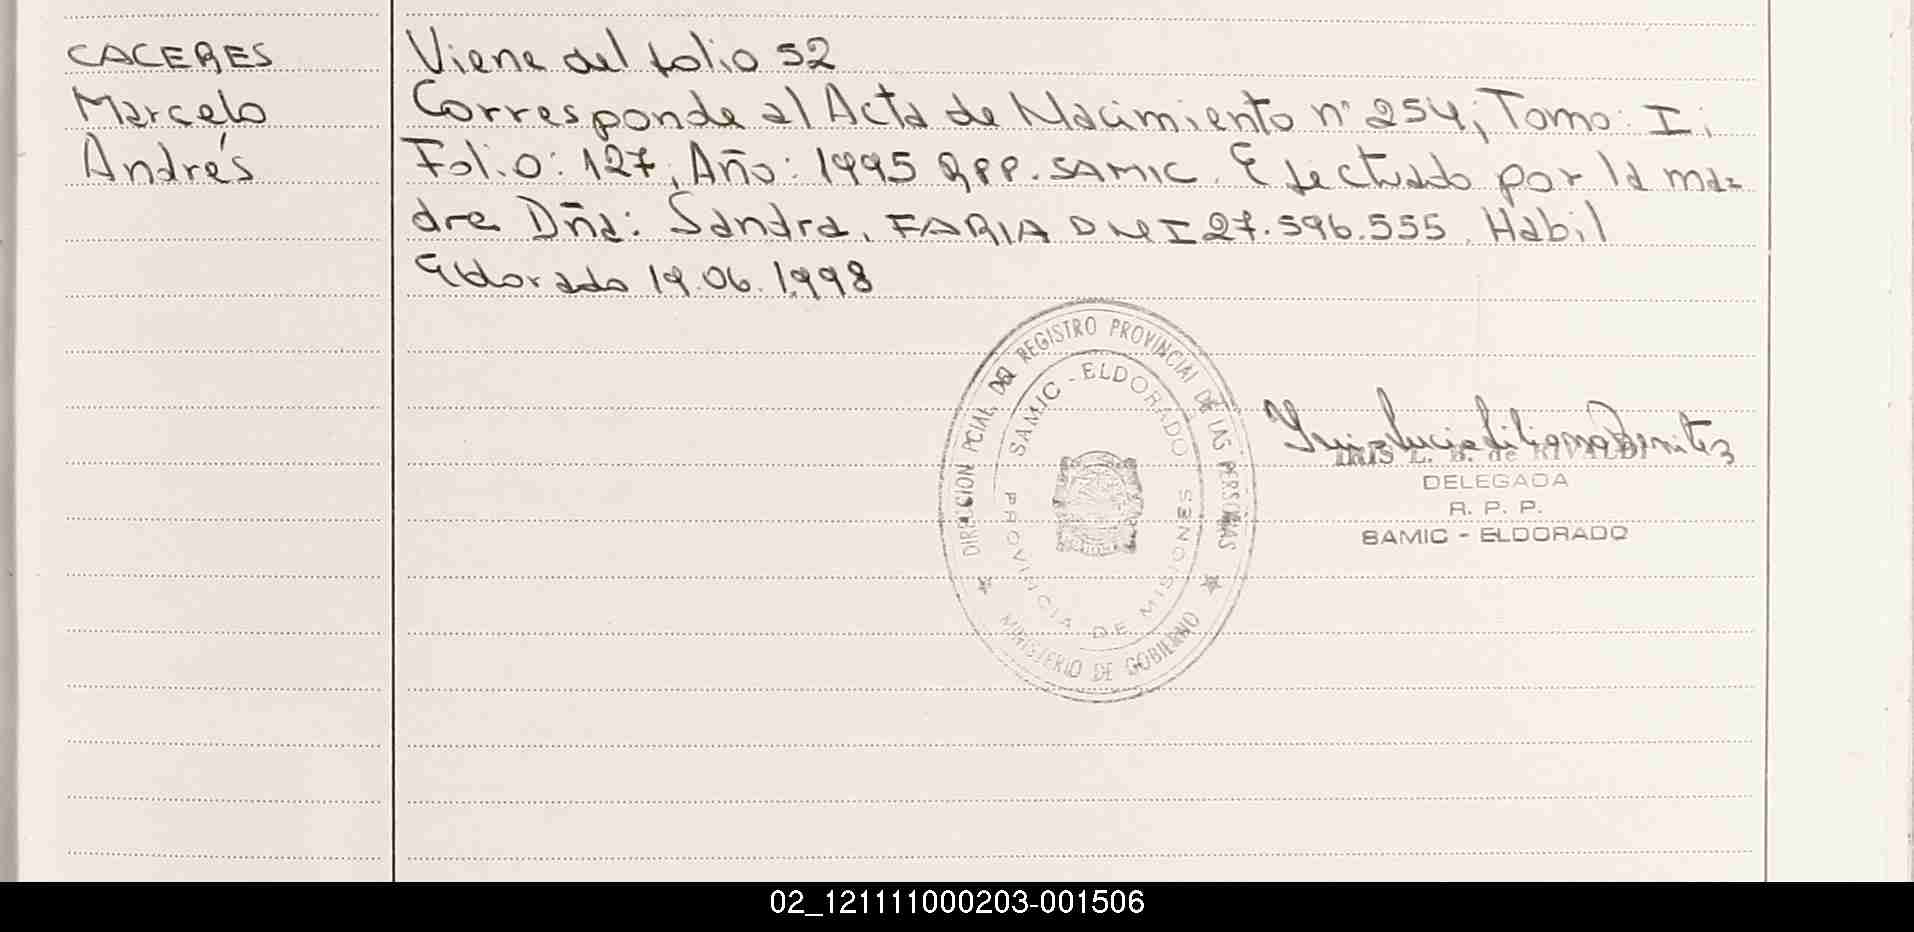 CACERES
Marcelo
Andrés
Viene del folio 52
Corresponde al Acta de Nacimiento nº 254; Tomo: I;
Folio: 127; Año: 1995 RPP. SAMIC. Efectuado por la ma-
dre Dña: Sandra, FARIA DNI 27.596.555. Habil
Eldorado 19.06.1998
DIRECCION PCIAL. DEL REGISTRO PROVINCIAL DE LAS PERSONAS
SAMIC - ELDORADO
PROVINCIA DE MISIONES
MINISTERIO DE GOBIERNO
Lucia Liliana Benitez
IRIS L. B. de RIVALDI
DELEGADA
R. P. P.
SAMIC - ELDORADO
02_121111000203-001506